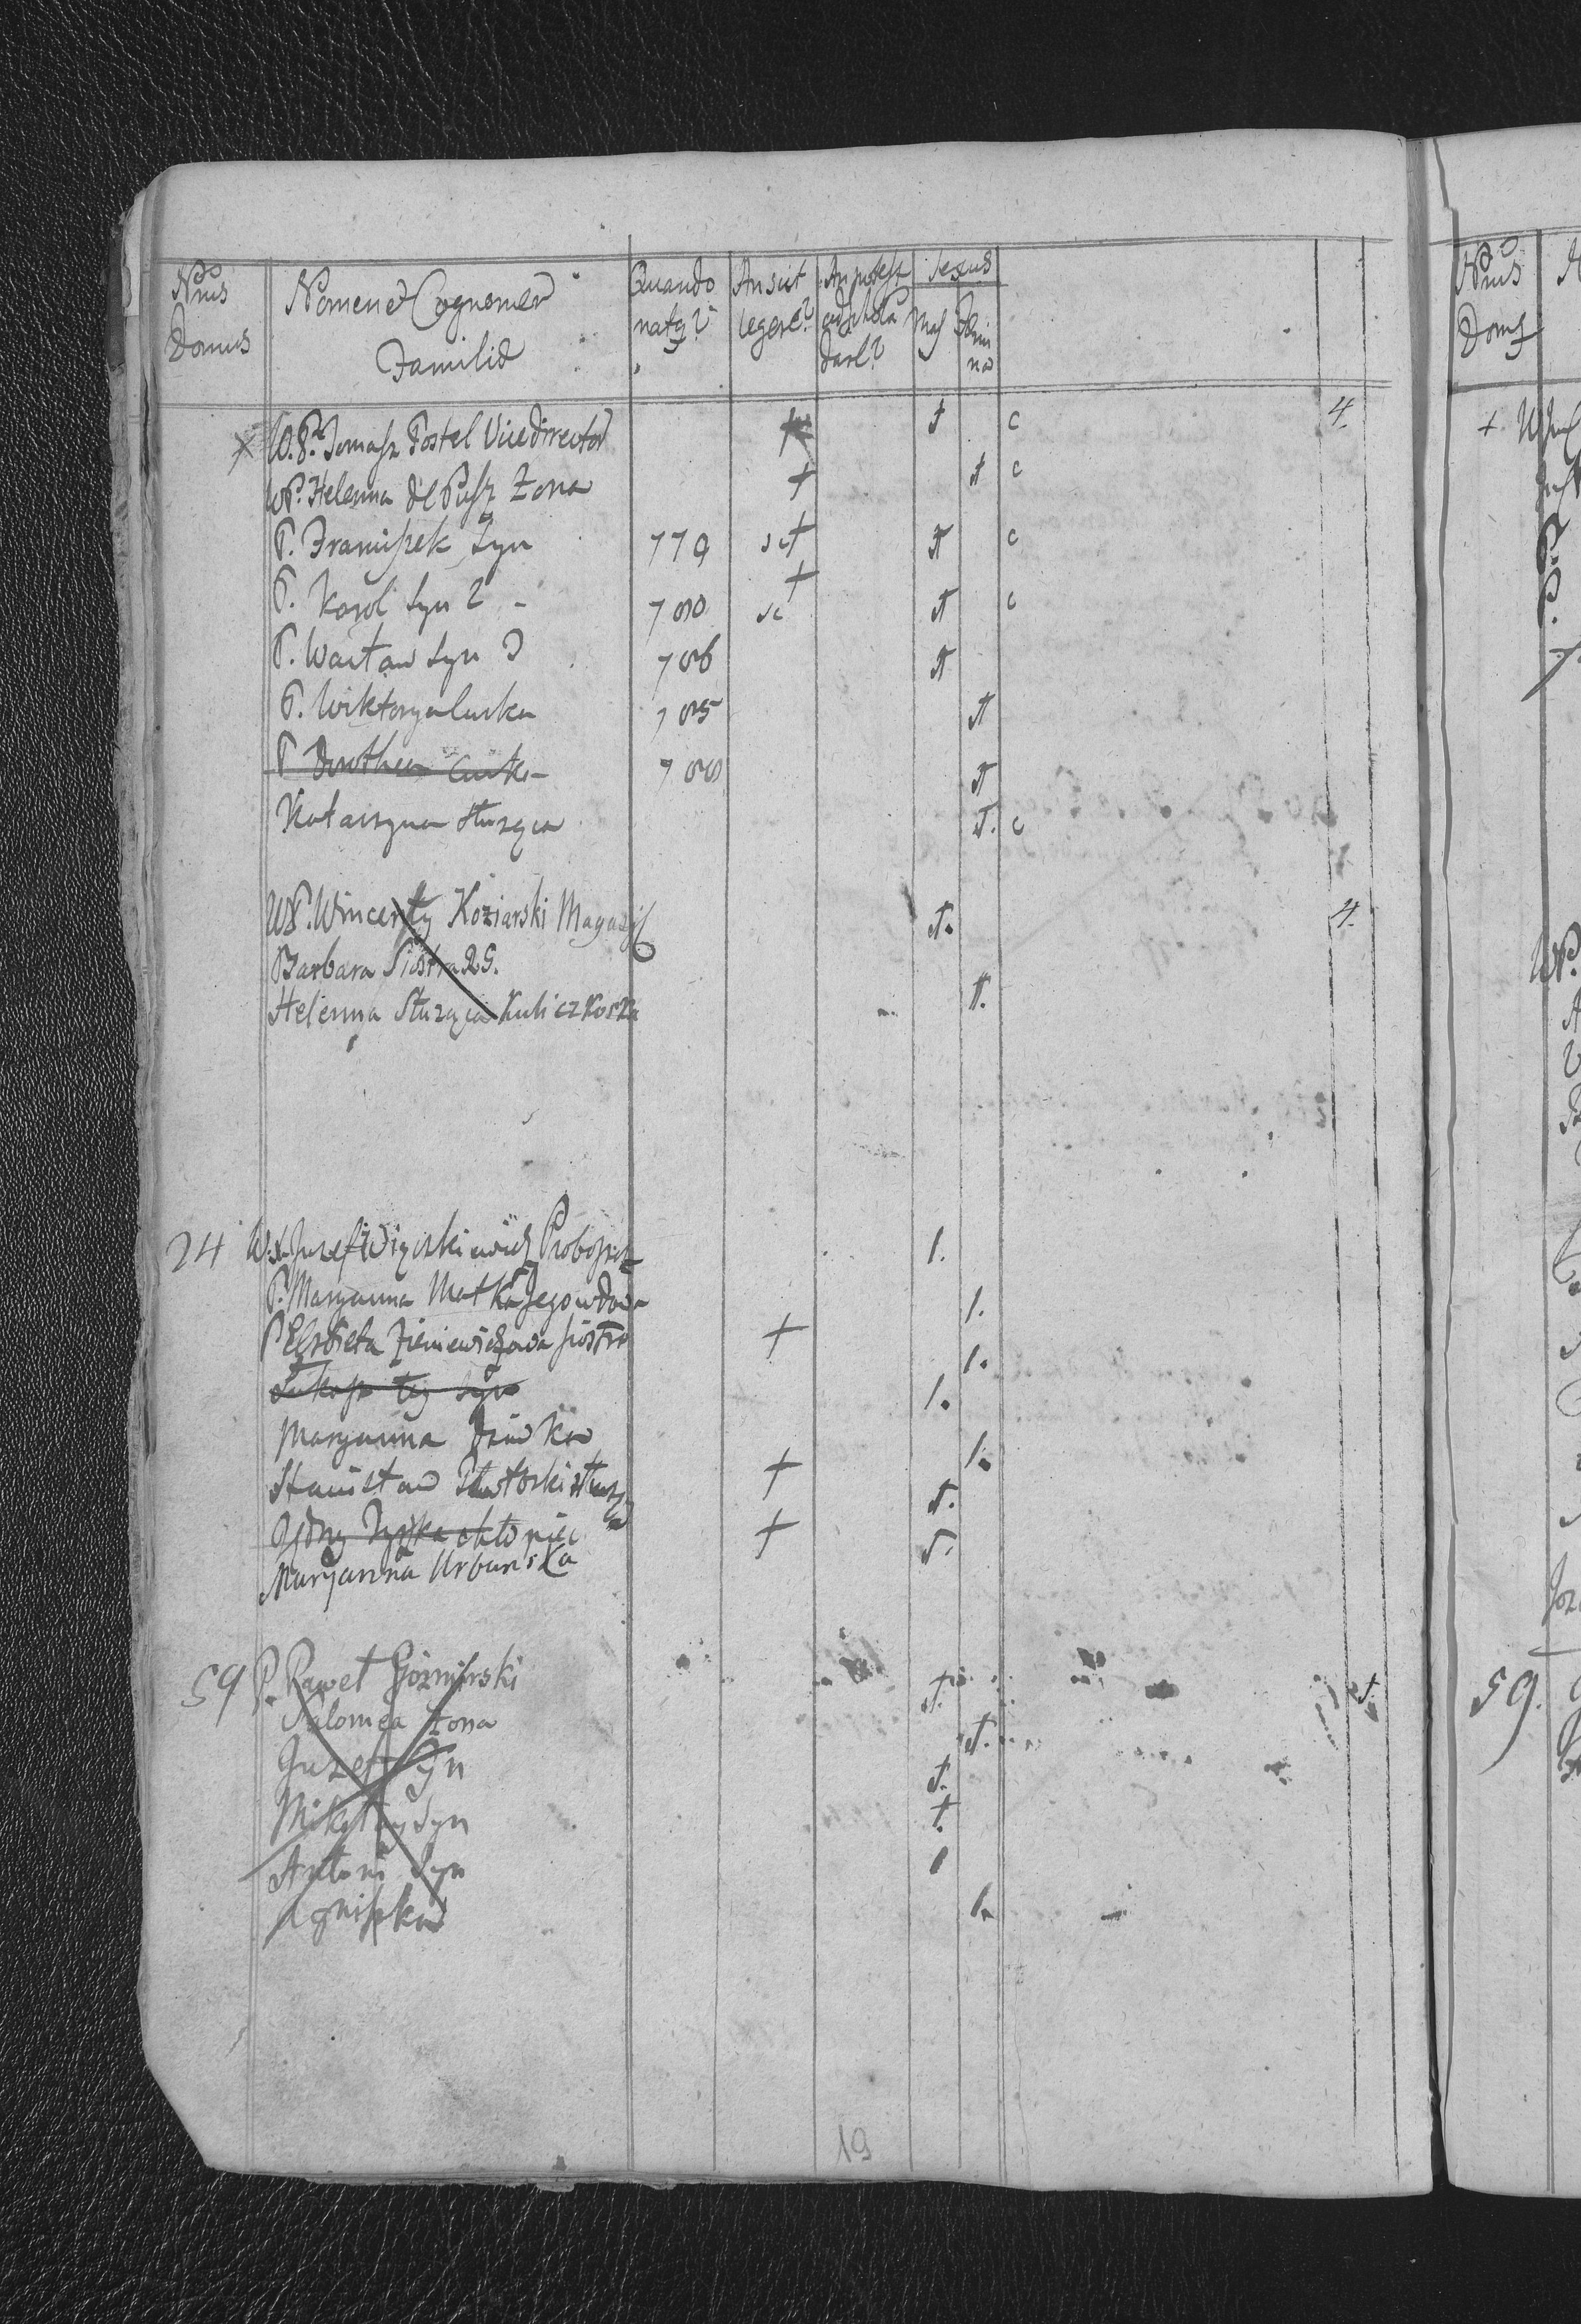 Nrus Domus
Nomen et Cognomen Familiae
Quando natq?
An scit legere?
An potest ad schola dare?
Sexus
Mas
Femina
W.P. Tomasz Postel Vicedirector + c 4.
WP. Helenna de Pusz Zona + + c
P. Franciszek Syn 779 sc + c
P. Karol Syn 2 - 780 sc + c
P. Wacław Syn 3 786
P. Wiktorya Curka 785
P Dorothea Curk- 788
Katarzyna służąca c
WP. Wincenty Koziarski Magazyl 4.
Barbara Siostra 25.
Helenna Służąca Kuliczkoska
24 W.X. Juzef Proboszcz 1.
P. Maryanna Matka Jego wdowa 1.
P Elzbieta Zieniewiczowa siostra + 1.
Łukasz tey syn 1.
Maryanna dziwka 1.
Stanisław +
chłopiec +
Maryanna Urbanska
59 P. Paweł
Salomea Zona
Juzef Syn
Mikołay Syn
Antoni Syn
Agniszka
19
Nrus
Domq
59.